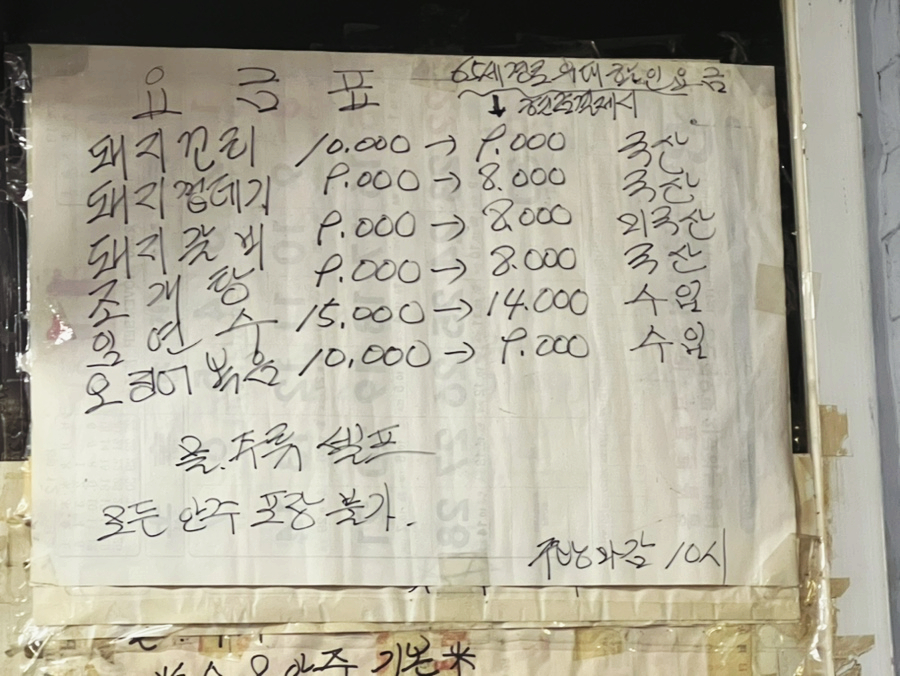 요금표
65세 경로 우대 할인 요금
↓
돼지꼬리 10.000 → 9.000 국산
돼지껍데기 9.000 → 8.000 국산
돼지갈비 9.000 → 8.000 외국산
조개탕 9.000 → 8.000 국산
임연수 15.000 → 14.000 수입
오징어볶음 10.000 → 9.000 수입
물.주류 셀프
모든 안주 포장 불가.
마감 10시
기본